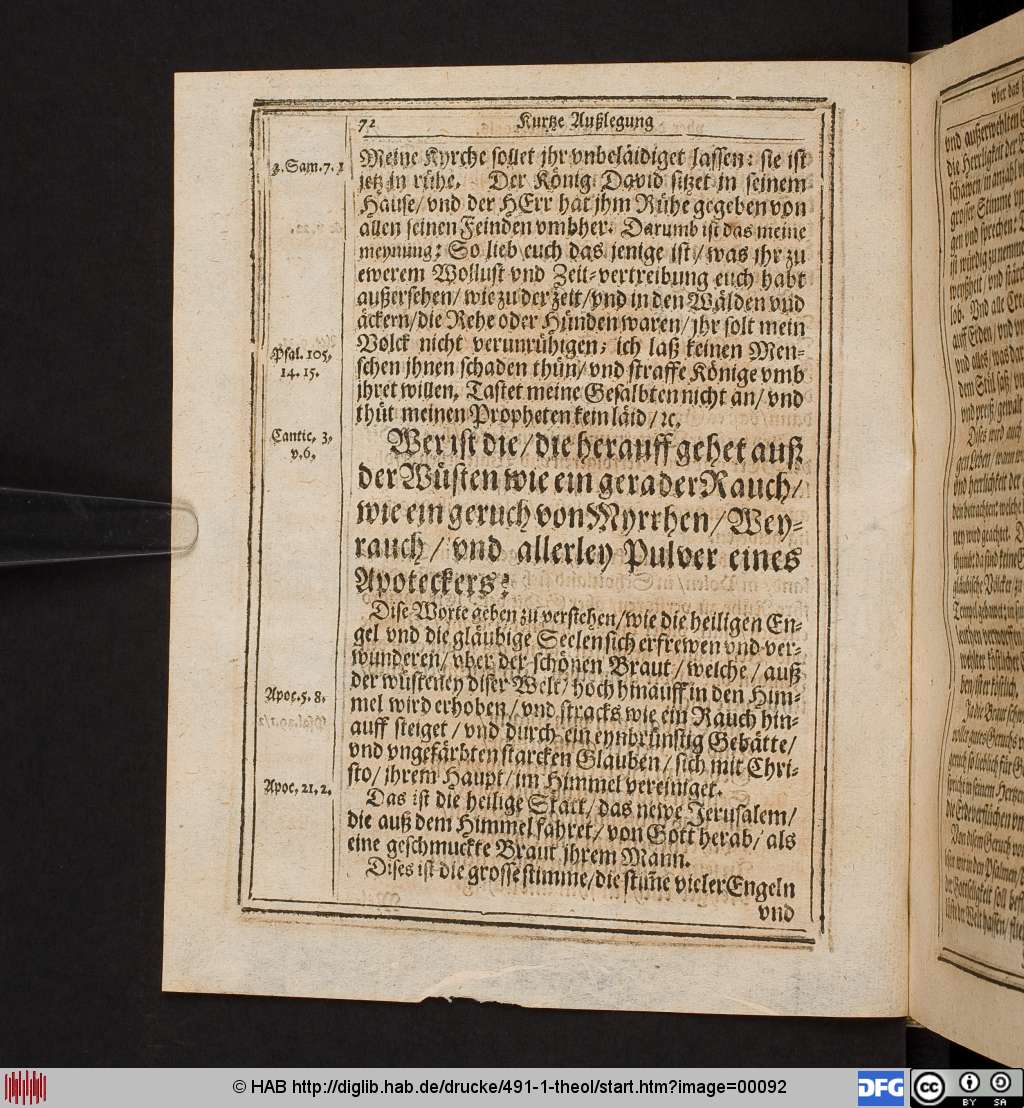 72 Kurtze Außlegung
2. Sam. 7. 1
Meine Kyrche sollet jhr vnbeläidiget lassen: sie ist
jetz in rühe. Der König David sitzet in seinem
Hause/ vnd der HErr hat jhm Rühe gegeben von
allen seinen Feinden vmbher. Darumb ist das meine
meynung: So lieb euch das jenige ist/ was jhr zu
ewerem Wollust vnd Zeit-vertreibung euch habt
außersehen/ wie zu der zeit/ vnd in den Wälden vnd
äckern/ die Rehe oder Hünden waren/ jhr solt mein
Volck nicht verunrühigen: ich laß keinen Men-
Psal. 105.
14. 15.
schen jhnen schaden thün/ vnd straffe Könige vmb
jhret willen. Tastet meine Gesalbten nicht an/ vnd
thüt meinen Propheten kein läid/ ꝛc.
Cantic. 3.
v. 6.
Wer ist die/ die herauff gehet auß
der Wüsten wie ein gerader Rauch/
wie ein geruch von Myrrhen/ Wey-
rauch/ vnd allerley Pulver eines
Apoteckers?
Dise Worte geben zu verstehen/ wie die heiligen En-
gel vnd die gläubige Seelen sich erfrewen vnd ver-
wunderen/ vber der schönen Braut/ welche/ auß
der wüsteney diser Welt/ hoch hinauff in den Him-
Apoc. 5. 8.
mel wird erhoben/ vnd stracks wie ein Rauch hin-
auff steiget/ vnd durch ein eynbrünstig Gebätte/
vnd vngefärbten starcken Glauben/ sich mit Chri-
sto/ jhrem Haupt/ im Himmel vereiniget.
Apoc. 21. 2.
Das ist die heilige Statt/ das newe Jerusalem/
die auß dem Himmel fahret/ von Gott herab/ als
eine geschmuckte Braut jhrem Mann.
Dises ist die grosse stimme/ die stim̃e vieler Engeln
vnd
vber das
vnd außerwehlten
die Herrligkeit der
grosser Stimme
gen vnd sprechen:
lob. Vnd alle
auff Erden/ vnd
vnd alles/ was
dem Stül saß/
vnd preiß/ gewalt
Dises wird auch
gen Leben/ wann
vnd herrlichkeit der
ben ist er köstlich.
Ja die Braut
© HAB http://diglib.hab.de/drucke/491-1-theol/start.htm?image=00092
DFG
cc
BY SA